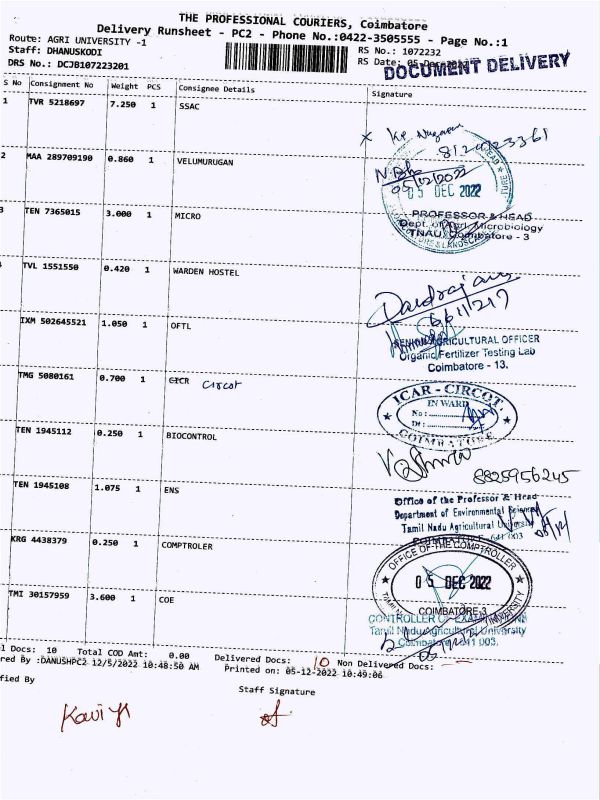 THE PROFESSIONAL COURIERS, Coimbatore
Delivery Runsheet - PC2 - Phone No.:0422-3505555 - Page No.:1
Route: AGRI UNIVERSITY -1
RS No.: 1072232
Staff: DHANUSKODI
RS Date: 05 Dec
DRS No.: DCJB107223201
DOCUMENT DELIVERY
S No Consignment No Weight PCS Consignee Details Signature
1 TVR 5218697 7.250 1 SSAC
8124123361
2 MAA 289709190 0.860 1 VELUMURUGAN
05/12/2022
05 DEC 2022
3 TEN 7365015 3.000 1 MICRO
PROFESSOR & HEAD
Dept. of Agrl. Microbiology
TNAU, Coimbatore - 3
TVL 1551550 0.420 1 WARDEN HOSTEL
6611217
IXM 502645521 1.050 1 OFTL
SENIOR AGRICULTURAL OFFICER
Organic Fertilizer Testing Lab
Coimbatore - 13.
TMG 5080161 0.700 1 CICR Circot
ICAR - CIRCOT
INWARD
No :
Dt :
COIMBATORE
TEN 1945112 0.250 1 BIOCONTROL
8825956245
TEN 1945108 1.075 1 ENS
Office of the Professor & Head
Department of Environmental Sciences
Tamil Nadu Agricultural University
KRG 4438379 0.250 1 COMPTROLER
OFFICE OF THE COMPTROLLER
05 DEC 2022
COIMBATORE-3
TMI 30157959 3.600 1 COE
CONTROLLER OF EXAMINATIONS
Tamil Nadu Agricultural University
l Docs: 10 Total COD Amt: 0.00 Delivered Docs: 10 Non Delivered Docs:
red By :DANUSHPC2 12/5/2022 10:48:50 AM Printed on: 05-12-2022 10:49:06
fied By
Staff Signature